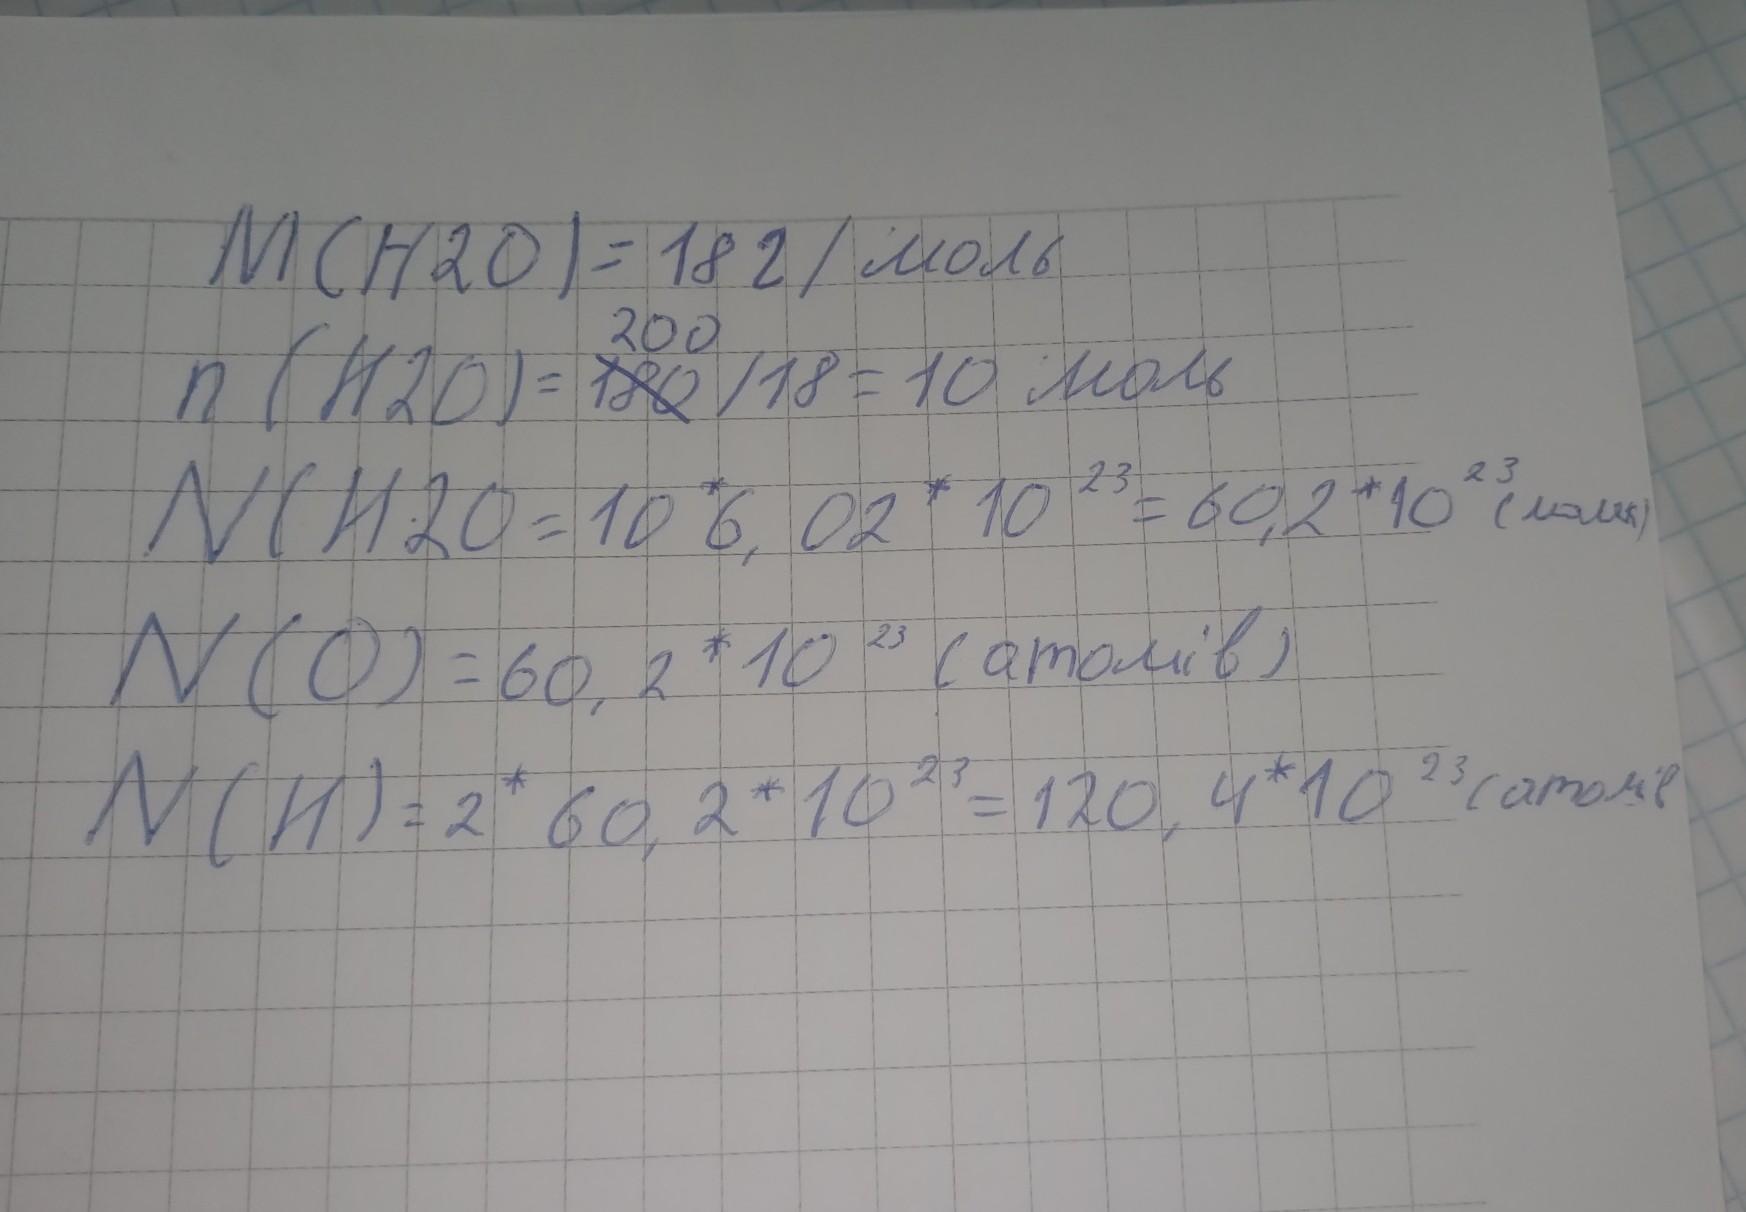 M(H2O)=18г/моль
n(H2O)=200/18=10 моль
N(H2O=10*6,02*10²³=60,2*10²³
N(O)=60,2*10²³(атомів)
N(H)=2*60,2*10²³=120,4*10²³(атомів